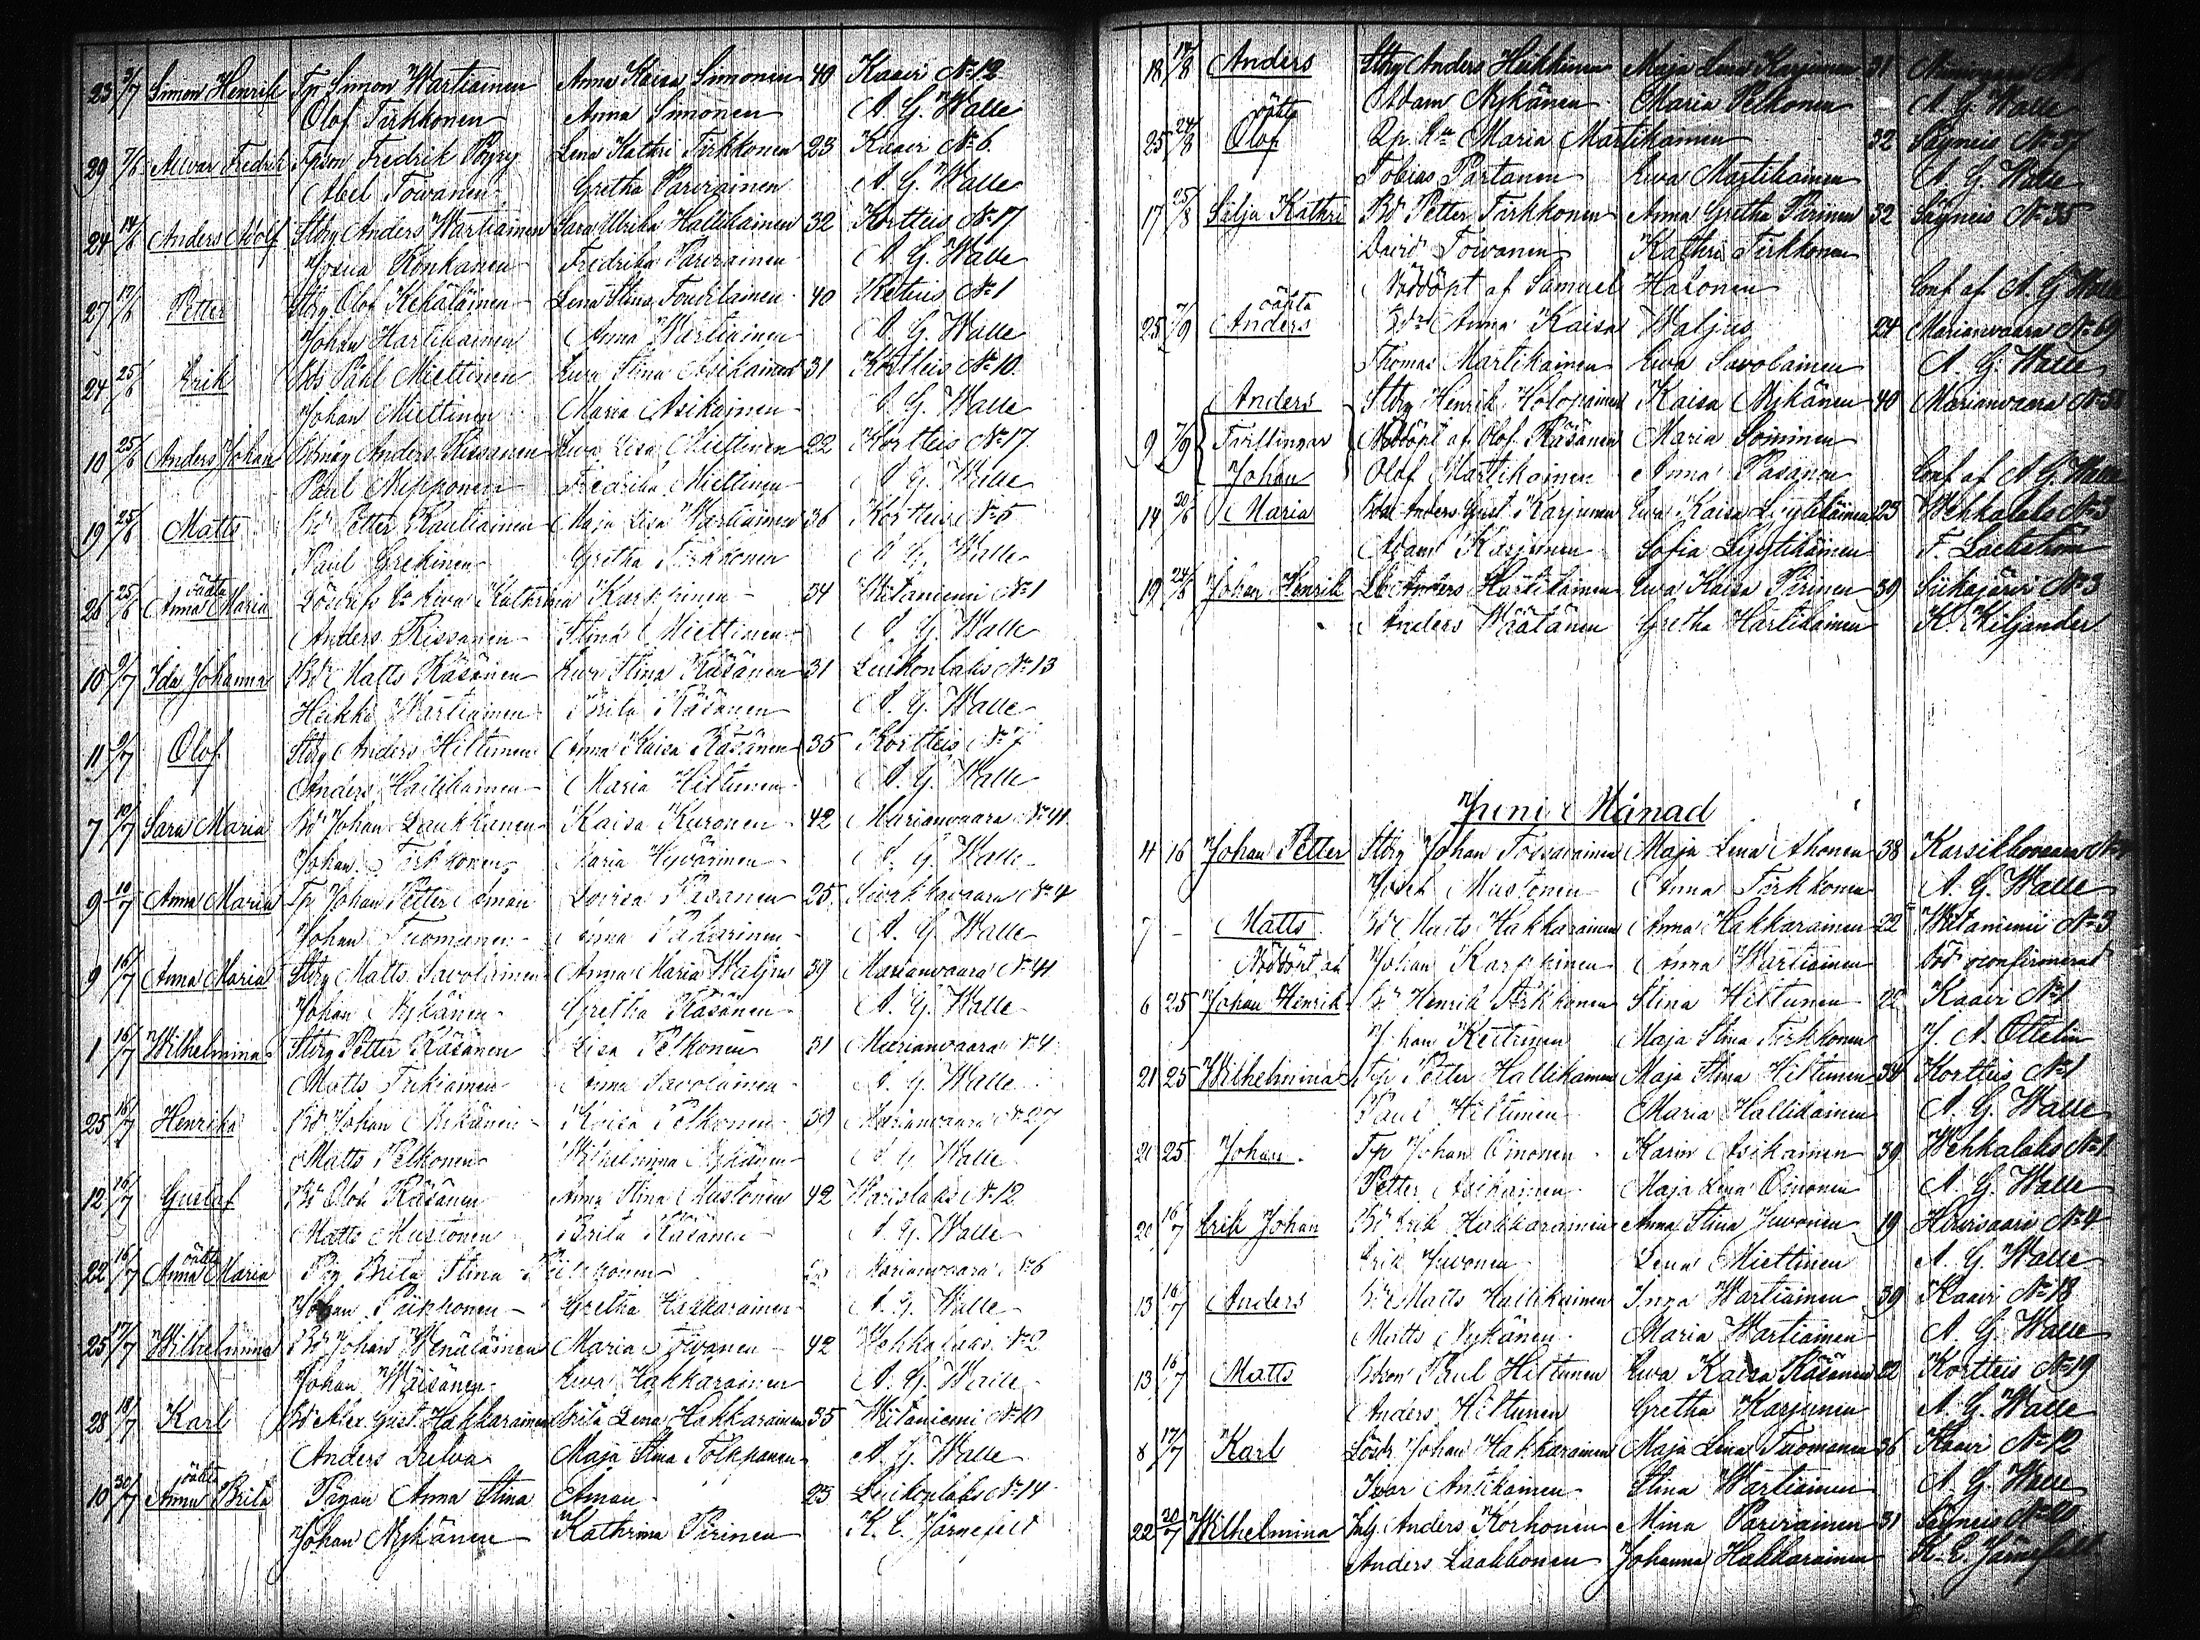 23 3/7 Simon Henrik Tp Simon Wartiainen Anna Kaisa Simonen 40 Kaavi No 12
Olof Tirkkonen Anna Simonen A. G. Walle
29 7/6 Alwar Fredrik Tpson Fredrik Byry Lena Kathri Tirkkonen 23 Kaavi No 6
Abel Toivanen Gretha Parviainen A. G. Walle
24 14/6 Anders Adolf Stbrg Anders Wartiainen Sara Ulrika Hallikainen 32 Kortteis No 17
Josua Konkanen Fredrika Parviainen A. G. Walle
27 17/6 Petter Stbrg Olof Kekäläinen Lena Stina 40 Retuis No 1
Johan Hartikainen Anna Wartiainen A. G. Walle
24 25/6 Erik Påhl Miettinen Ewa Stina Asikainen 31 Kortteis No 10
Johan Miettinen Maria Asikainen A. G. Walle
10 25/6 Anders Johan Anders Rissanen Ewa Lisa Miettinen 22 Kortteis No 17
Paul Nipponen Fredrika Miettinen A. G. Walle
19 25/6 Matts Bd Petter Rautiainen Maja Lisa Wartiainen 36 Kortteis No 5
Paul Grekinen Gretha Tirkkonen A. G. Walle
26 25/6 oäkta Anna Maria Ewa Kathrina Karppinen 34 Witaniemi No 1
Anders Rissanen Stina Miettinen A. G. Walle
10 9/7 Ida Johanna Bd Matts Räsänen Ewa Stina Räsänen 31 Luikonlaks No 13
Heikki Wartiainen Brita Räsänen A. G. Walle
11 9/7 Olof Stbrg Anders Hiltunen Anna Kaisa Räsänen 35 Kortteis No 7
Anders Haikkainen Maria Hiltunen A. G. Walle
7 10/7 Sara Maria Bd Johan Laukkanen Kaisa Kuronen 42 Marianvaara No 41
Johan Tirkkonen Maria Hyvärinen A. G. Walle
9 10/7 Anna Maria Tp Johan Petter Eman Lovisa Räsänen 25 Sivakkavaara No 4
Johan Tuomanen Anna Pakarinen A. G. Walle
9 16/7 Anna Maria Stbrg Matts Savolainen Anna Maria Waljus 39 Marianvaara No 41
Johan Nykänen Gretha Räsänen A. G. Walle
1 16/7 Wilhelmina Stbrg Petter Räsänen Lisa Pelkonen 31 Marianvaara No 4
Matts Tukiainen Anna Savolainen A. G. Walle
25 16/7 Henrika Bd Johan Nykänen Kaisa Pelkonen 39 Marianvaara No 27
Matts Pelkonen Wilhelmina Nykänen A. G. Walle
12 16/7 Gustaf Bd Olof Räsänen Anna Stina Mustonen 42 Warislaks No 12
Matts Mustonen Brita Räsänen A. G. Walle
22 16/7 oäkta Anna Maria Pig Brita Stina Marianvaara No 6
Johan Päikkonen Gretha Hakkarainen A. G. Walle
25 17/7 Wilhelmina Bd Johan Wenäläinen Maria Toivanen 42 Wehkalaks No 2
Johan Wäisänen Ewa Hakkarainen A. G. Walle
28 18/7 Karl Bd Alex. Gust. Hakkarainen Brita Lena Hakkarainen 35 Witaniemi No 10
Anders Dielwa Maja Stina Tolkpanen A. G. Walle
10 30/7 oäkta Anna Brita Pigan Anna Stina Eman 23 Luikonlaks No 14
Johan Nykänen Kathrina Pirinen K. E. Järnefelt
18 14/8 Anders Stbrg Anders Heikkinen Maja Lena Karjunen 31
Adam Nykänen Maria Pelkonen A. G. Walle
25 24/8 oäkta Olof Maria Martikainen 32 Säyneis No 37
Tobias Partanen Ewa Martikainen A. G. Walle
17 25/8 Silja Kathri Bd Petter Tirkkonen Anna Gretha Pirinen 32 Säyneis No 35
David Toivanen Kathri Tirkkonen
Nöddöpt af Samuel Halonen Conf af A. G. Walle
25 7/9 oäkta Anders Anna Kaisa Waljus 24 Marianvaara No 69
Thomas Martikainen Ewa Savolainen A. G. Walle
Anders Stbrg Henrik Holopainen Kaisa Nykänen 40 Marianvaara
9 7/9 Tvillingar Nöddöpt af Olof Räsänen Maria Soininen
Johan Olof Martikainen Anna Pasanen Conf af A. G. Walle
14 20/6 Maria Anders Gust. Karjunen Ewa Kaisa Lyytikäinen 23 Wehkalaks No 3
Adam Karjunen Sofia Lyytikäinen F. Lackström
19 24/6 Johan Henrik Anders Hartikainen Ewa Kaisa Pirinen 39 Siikajärvi No 3
Anders Wäätänen Gretha Hartikainen K. Kiljander
Juni Månad
4 16 Johan Petter Stbrg Johan Tossavainen Maja Lena Ahonen 38 Karsikkovaara
Josef Mustonen Anna Tirkkonen A. G. Walle
7 – Matts Bd Matts Hakkarainen Anna Hakkarainen 22 Witaniemi No 3
Nöddöpt af Johan Karppinen Anna Wartiainen död oconfirmerad
6 25 Johan Henrik Bd Henrik Tirkkonen Stina Hiltunen 22 Kaavi No 1
Johan Keitinen Maja Stina Tirkkonen J. A. Ottelin
21 25 Wilhelmina Tp Petter Hallikainen Maja Stina Hiltunen 34 Kortteis No 1
Paul Hiltunen Maria Hallikainen A. G. Walle
21 25 Johan Tp Johan Oinonen Karin Asikainen 39 Wehkalaks No 1
Petter Asikainen Maja Lena Oinonen A. G. Walle
20 16/7 Erik Johan Bd Erik Hakkarainen Anna Stina Juvonen 19 Hirvisaari No 4
Erik Juvonen Lena Miettinen A. G. Walle
13 16/7 Anders Bd Matts Haikkainen Inga Wartiainen 39 Kaavi No 18
Matts Nykänen Maria Wartiainen A. G. Walle
13 16/7 Matts Bdson Paul Hiltunen Ewa Kaisa Räsänen 22 Kortteis No 19
Anders Hiltunen Gretha Karjunen A. G. Walle
8 17/7 Karl Lösdr. Johan Hakkarainen Maja Lena Tuomanen 36 Kaavi No 12
Ivar Antikainen Stina Wartiainen A. G. Walle
22 20/7 Wilhelmina Inhy. Anders Korhonen Mina Parviainen 31 Säyneis No 20
Anders Laakkonen Johanna Hakkarainen K. E. Järnefelt